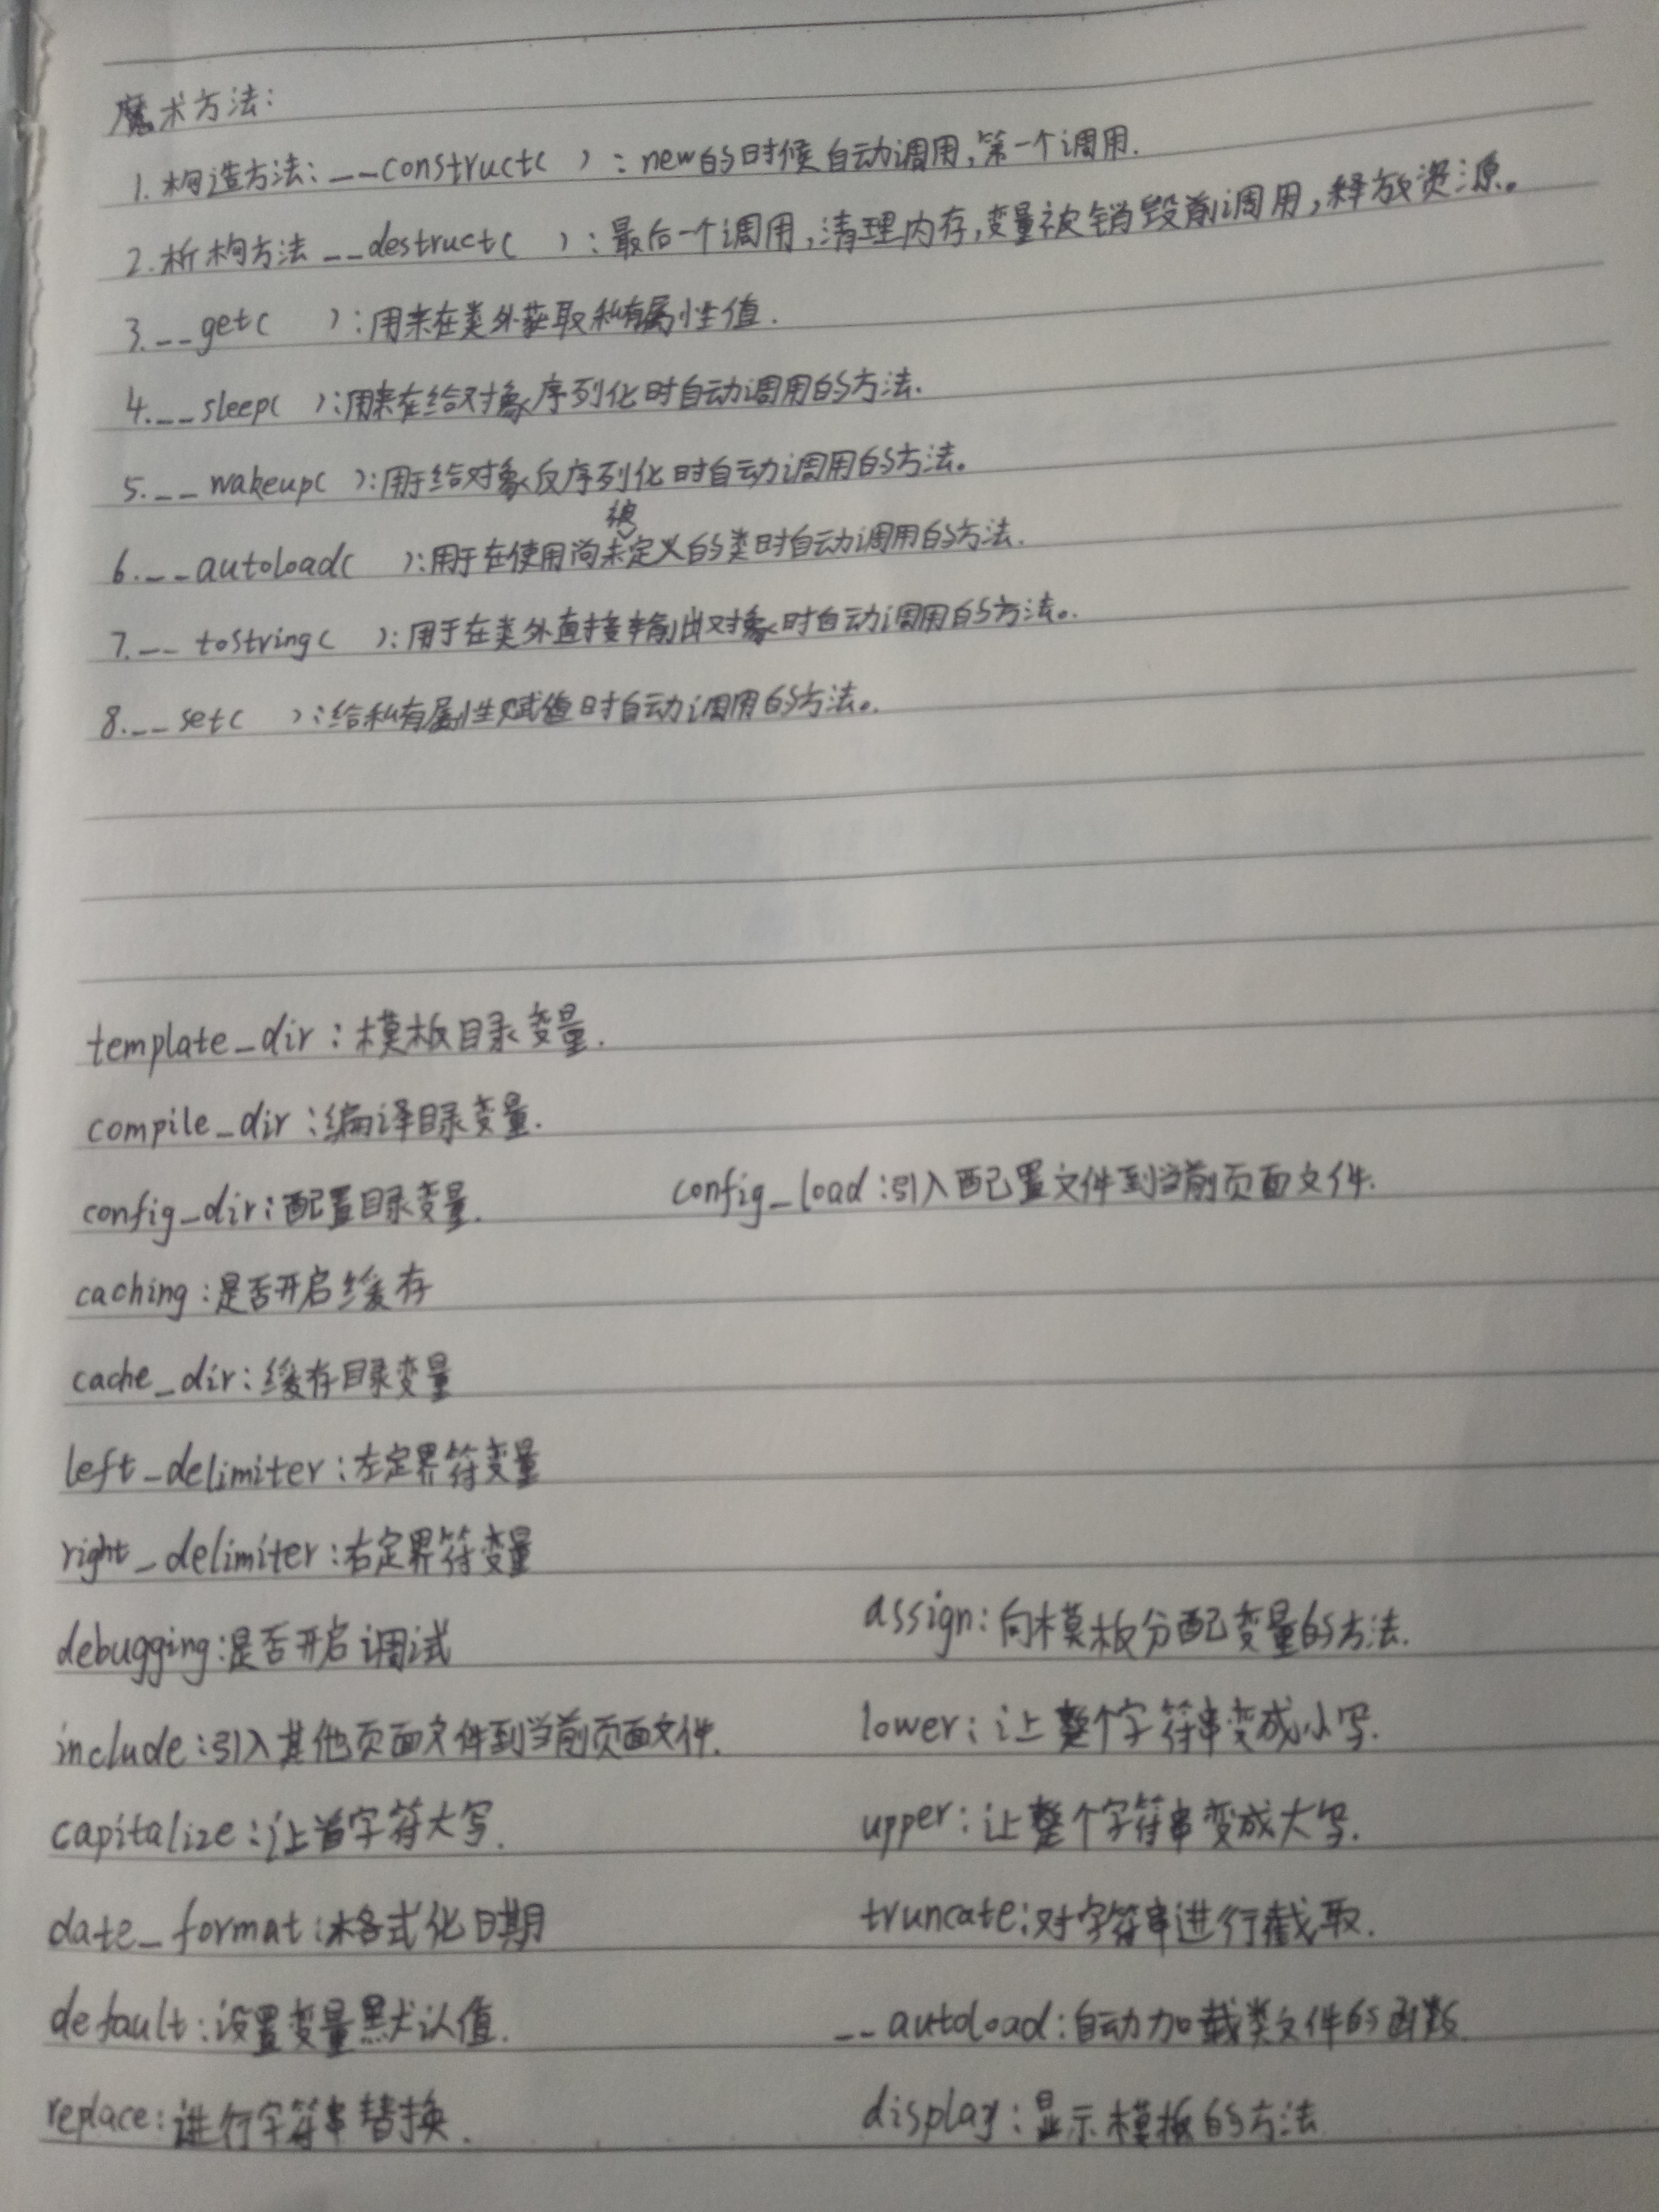 魔术方法:
1. 构造方法: __construct( ): new的时候自动调用,第一个调用.
2. 析构方法 __destruct( ): 最后一个调用,清理内存,变量被销毁前调用,释放资源。
3. __get( ): 用来在类外获取私有属性值.
4. __sleep( ): 用来在给对象序列化时自动调用的方法.
5. __wakeup( ): 用于给对象反序列化时自动调用的方法。
6. __autoload( ): 用于在使用尚未被定义的类时自动调用的方法.
7. __tostring( ): 用于在类外直接输出对象时自动调用的方法。
8. __set( ): 给私有属性赋值时自动调用的方法。
template_dir: 模板目录变量.
compile_dir: 编译目录变量.
config_dir: 配置目录变量. config_load: 引入配置文件到当前页面文件.
caching: 是否开启缓存
cache_dir: 缓存目录变量
left_delimiter: 左定界符变量
right_delimiter: 右定界符变量
debugging: 是否开启调试 assign: 向模板分配变量的方法.
include: 引入其他页面文件到当前页面文件. lower: 让整个字符串变成小写.
capitalize: 让首字符大写. upper: 让整个字符串变成大写.
date_format: 格式化日期 truncate: 对字符串进行截取.
default: 设置变量默认值. __autoload: 自动加载类文件的函数.
replace: 进行字符串替换. display: 显示模板的方法